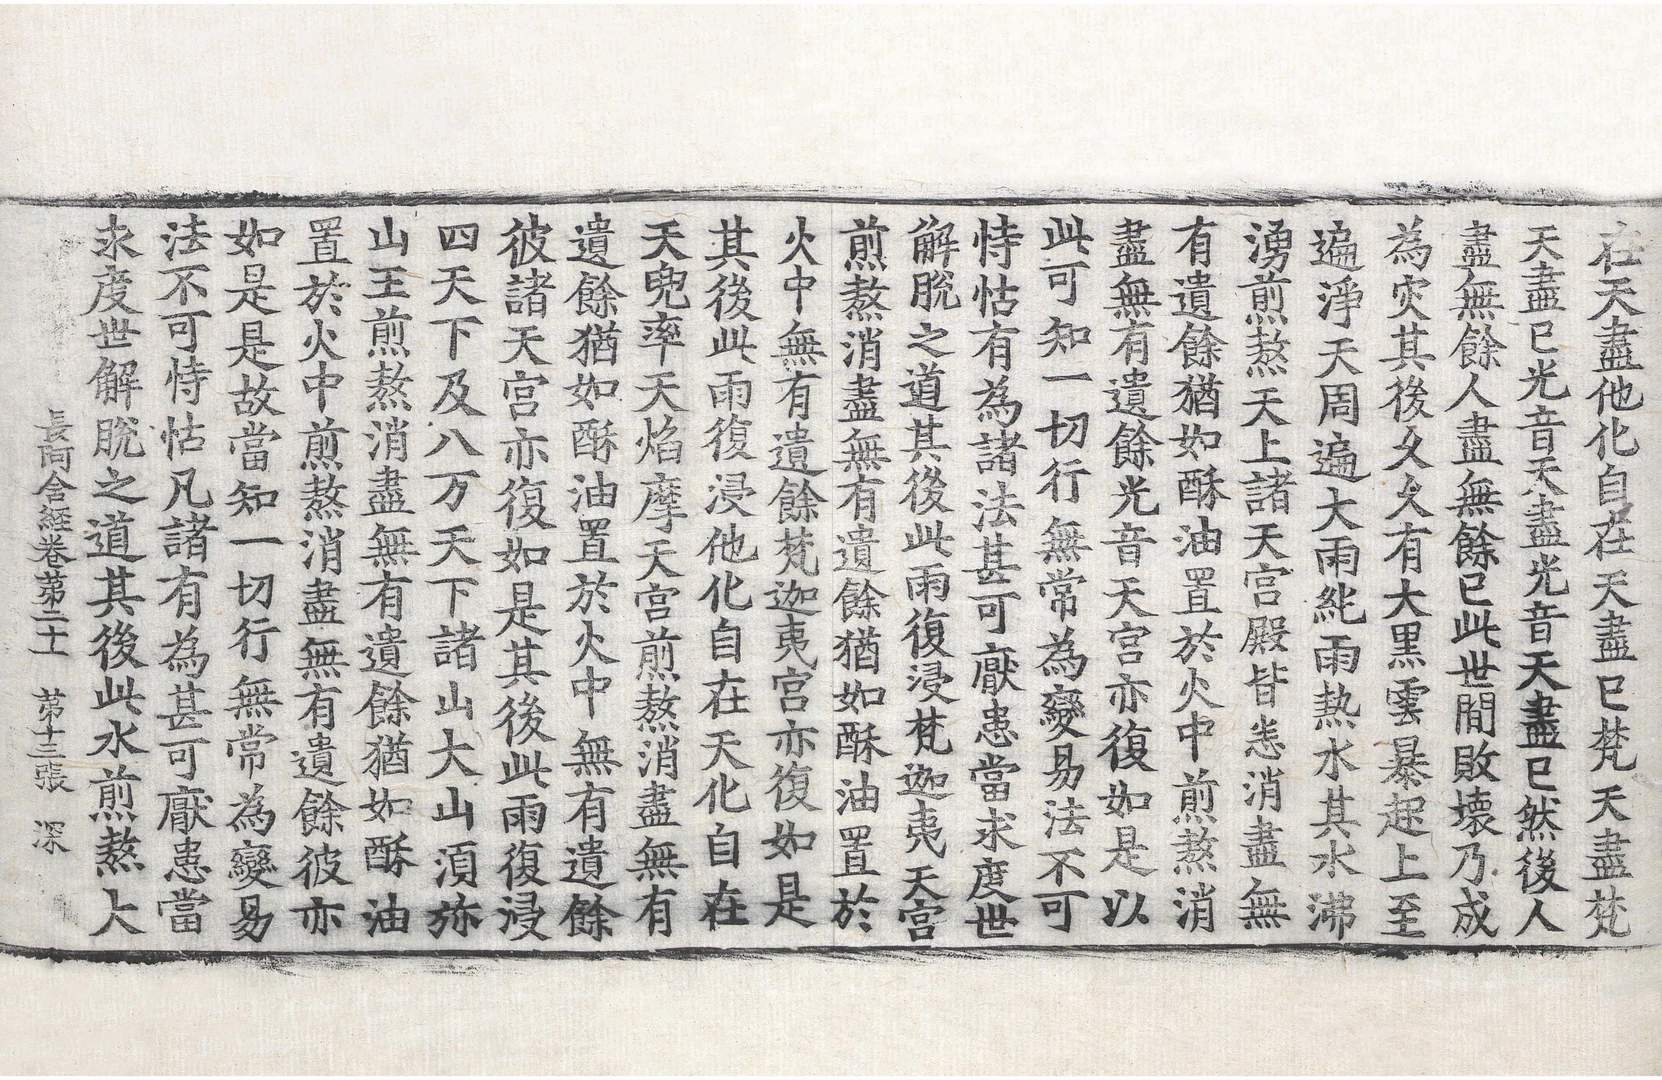 在天盡他化自在天盡已梵天盡梵
天盡已光音天盡光音天盡已然後人
盡無餘人盡無餘已此世間敗壞乃成
為灾其後久久有大黑雲暴起上至
遍淨天周遍大雨純雨熱水其水沸
湧煎熬天上諸天宮殿皆悉消盡無
有遺餘猶如酥油置於火中煎熬消
盡無有遺餘光音天宮亦復如是以
此可知一切行無常為變易法不可
恃怙有為諸法甚可厭患當求度世
解脫之道其後此雨復浸梵迦夷天宮
煎熬消盡無有遺餘猶如酥油置於
火中無有遺餘梵迦夷宮亦復如是
其後此雨復浸他化自在天化自在
天兜率天焰摩天宮煎熬消盡無有
遺餘猶如酥油置於火中無有遺餘
彼諸天宮亦復如是其後此雨復浸
四天下及八万天下諸山大山須弥
山王煎熬消盡無有遺餘猶如酥油
置於火中煎熬消盡無有遺餘彼亦
如是是故當知一切行無常為變易
法不可恃怙凡諸有為甚可厭患當
求度世解脫之道其後此水煎熬大
長阿含経卷苐二十一 苐十三張 深